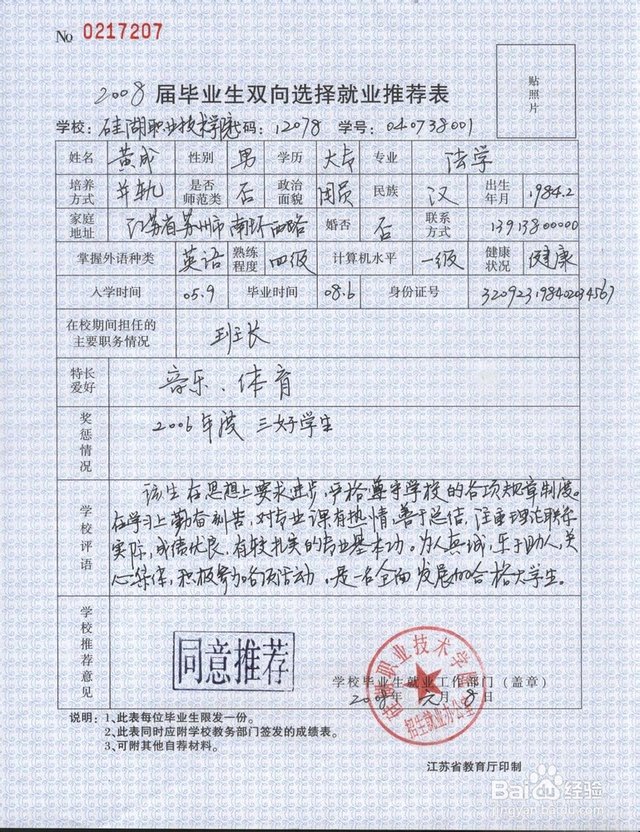 No 0217207
贴照片
2008届毕业生双向选择就业推荐表
学校: 硅湖职业技术学院 代码: 12078 学号: 040738001
姓名 黄成 性别 男 学历 大专 专业 法学
培养方式 并轨 是否师范类 否 政治面貌 团员 民族 汉 出生年月 1984.2
家庭地址 江苏省苏州市南环西路 婚否 否 联系方式 13913800000
掌握外语种类 英语 熟练程度 四级 计算机水平 一级 健康状况 健康
入学时间 05.9 毕业时间 08.6 身份证号 320923198402034567
在校期间担任的主要职务情况 班长
特长爱好 音乐、体育
奖惩情况 2006年度 三好学生
学校评语
该生在思想上要求进步,严格遵守学校的各项规章制度。
在学习上勤奋刻苦,对专业课有热情,善于总结,注重理论联系
实际,成绩优良,有较扎实的专业基本功。为人真诚,乐于助人,关
心集体,积极参加各项活动,是一名全面发展的合格大学生。
学校推荐意见
同意推荐
职业技术学院
招生就业办公室
学校毕业生就业工作部门(盖章)
2008年 元月8日
说明: 1、此表每位毕业生限发一份。
2、此表同时应附学校教务部门签发的成绩表。
3、可附其他自荐材料。
江苏省教育厅印制
Baidu经验